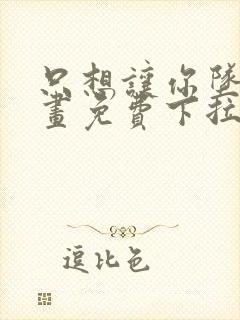 只想讓你墜
畫免費下拉
逗比色